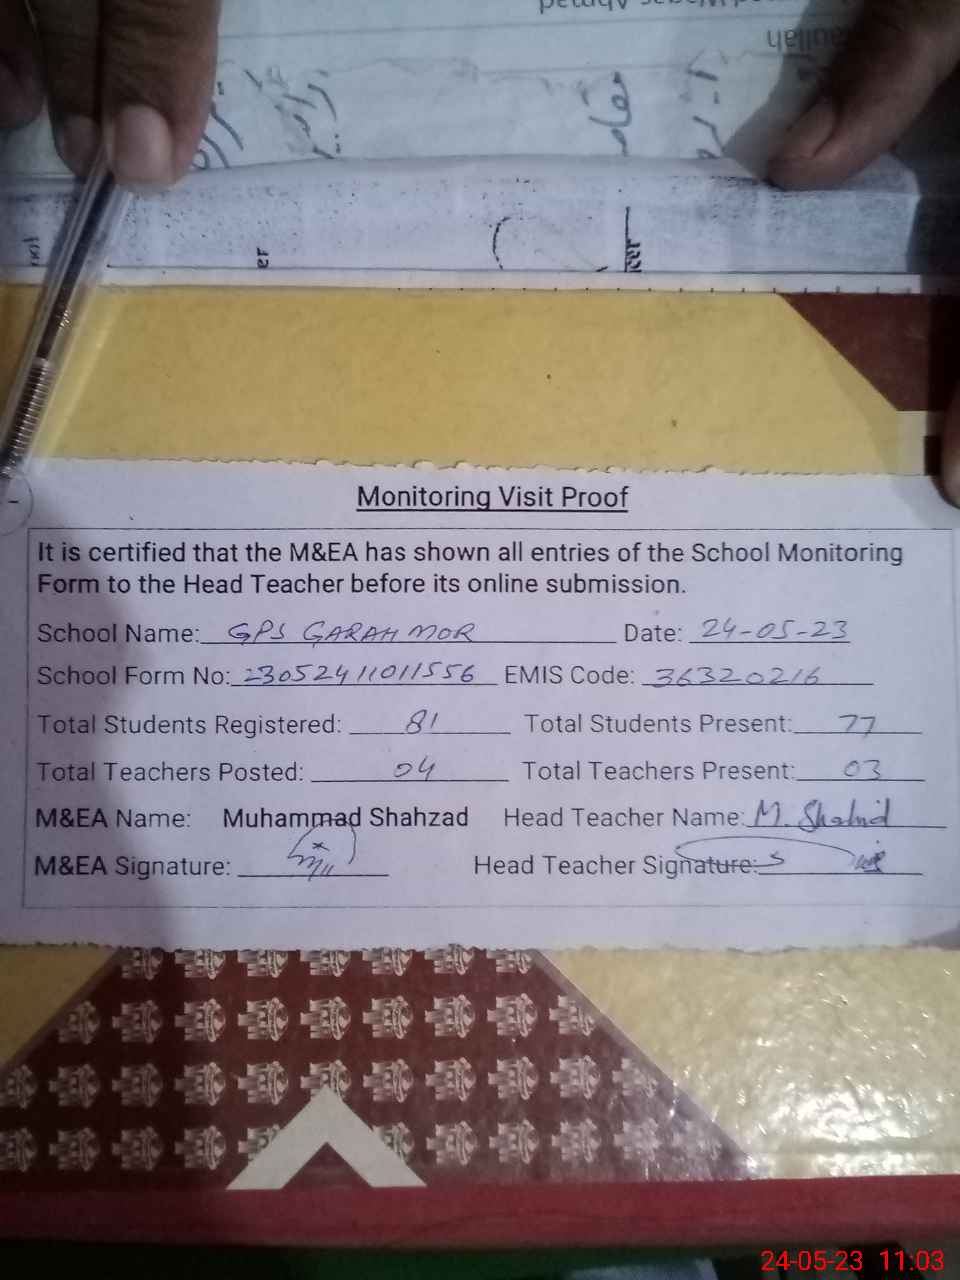 Monitoring Visit Proof
It is certified that the M&EA has shown all entries of the School Monitoring
Form to the Head Teacher before its online submission.
School Name: GPS GARAH MOR Date: 24-05-23
School Form No: 23052411011556 EMIS Code: 36320216
Total Students Registered: 81 Total Students Present: 77
Total Teachers Posted: 04 Total Teachers Present: 03
M&EA Name: Muhammad Shahzad Head Teacher Name: M. Shahid
M&EA Signature: Head Teacher Signature:
24-05-23 11:03